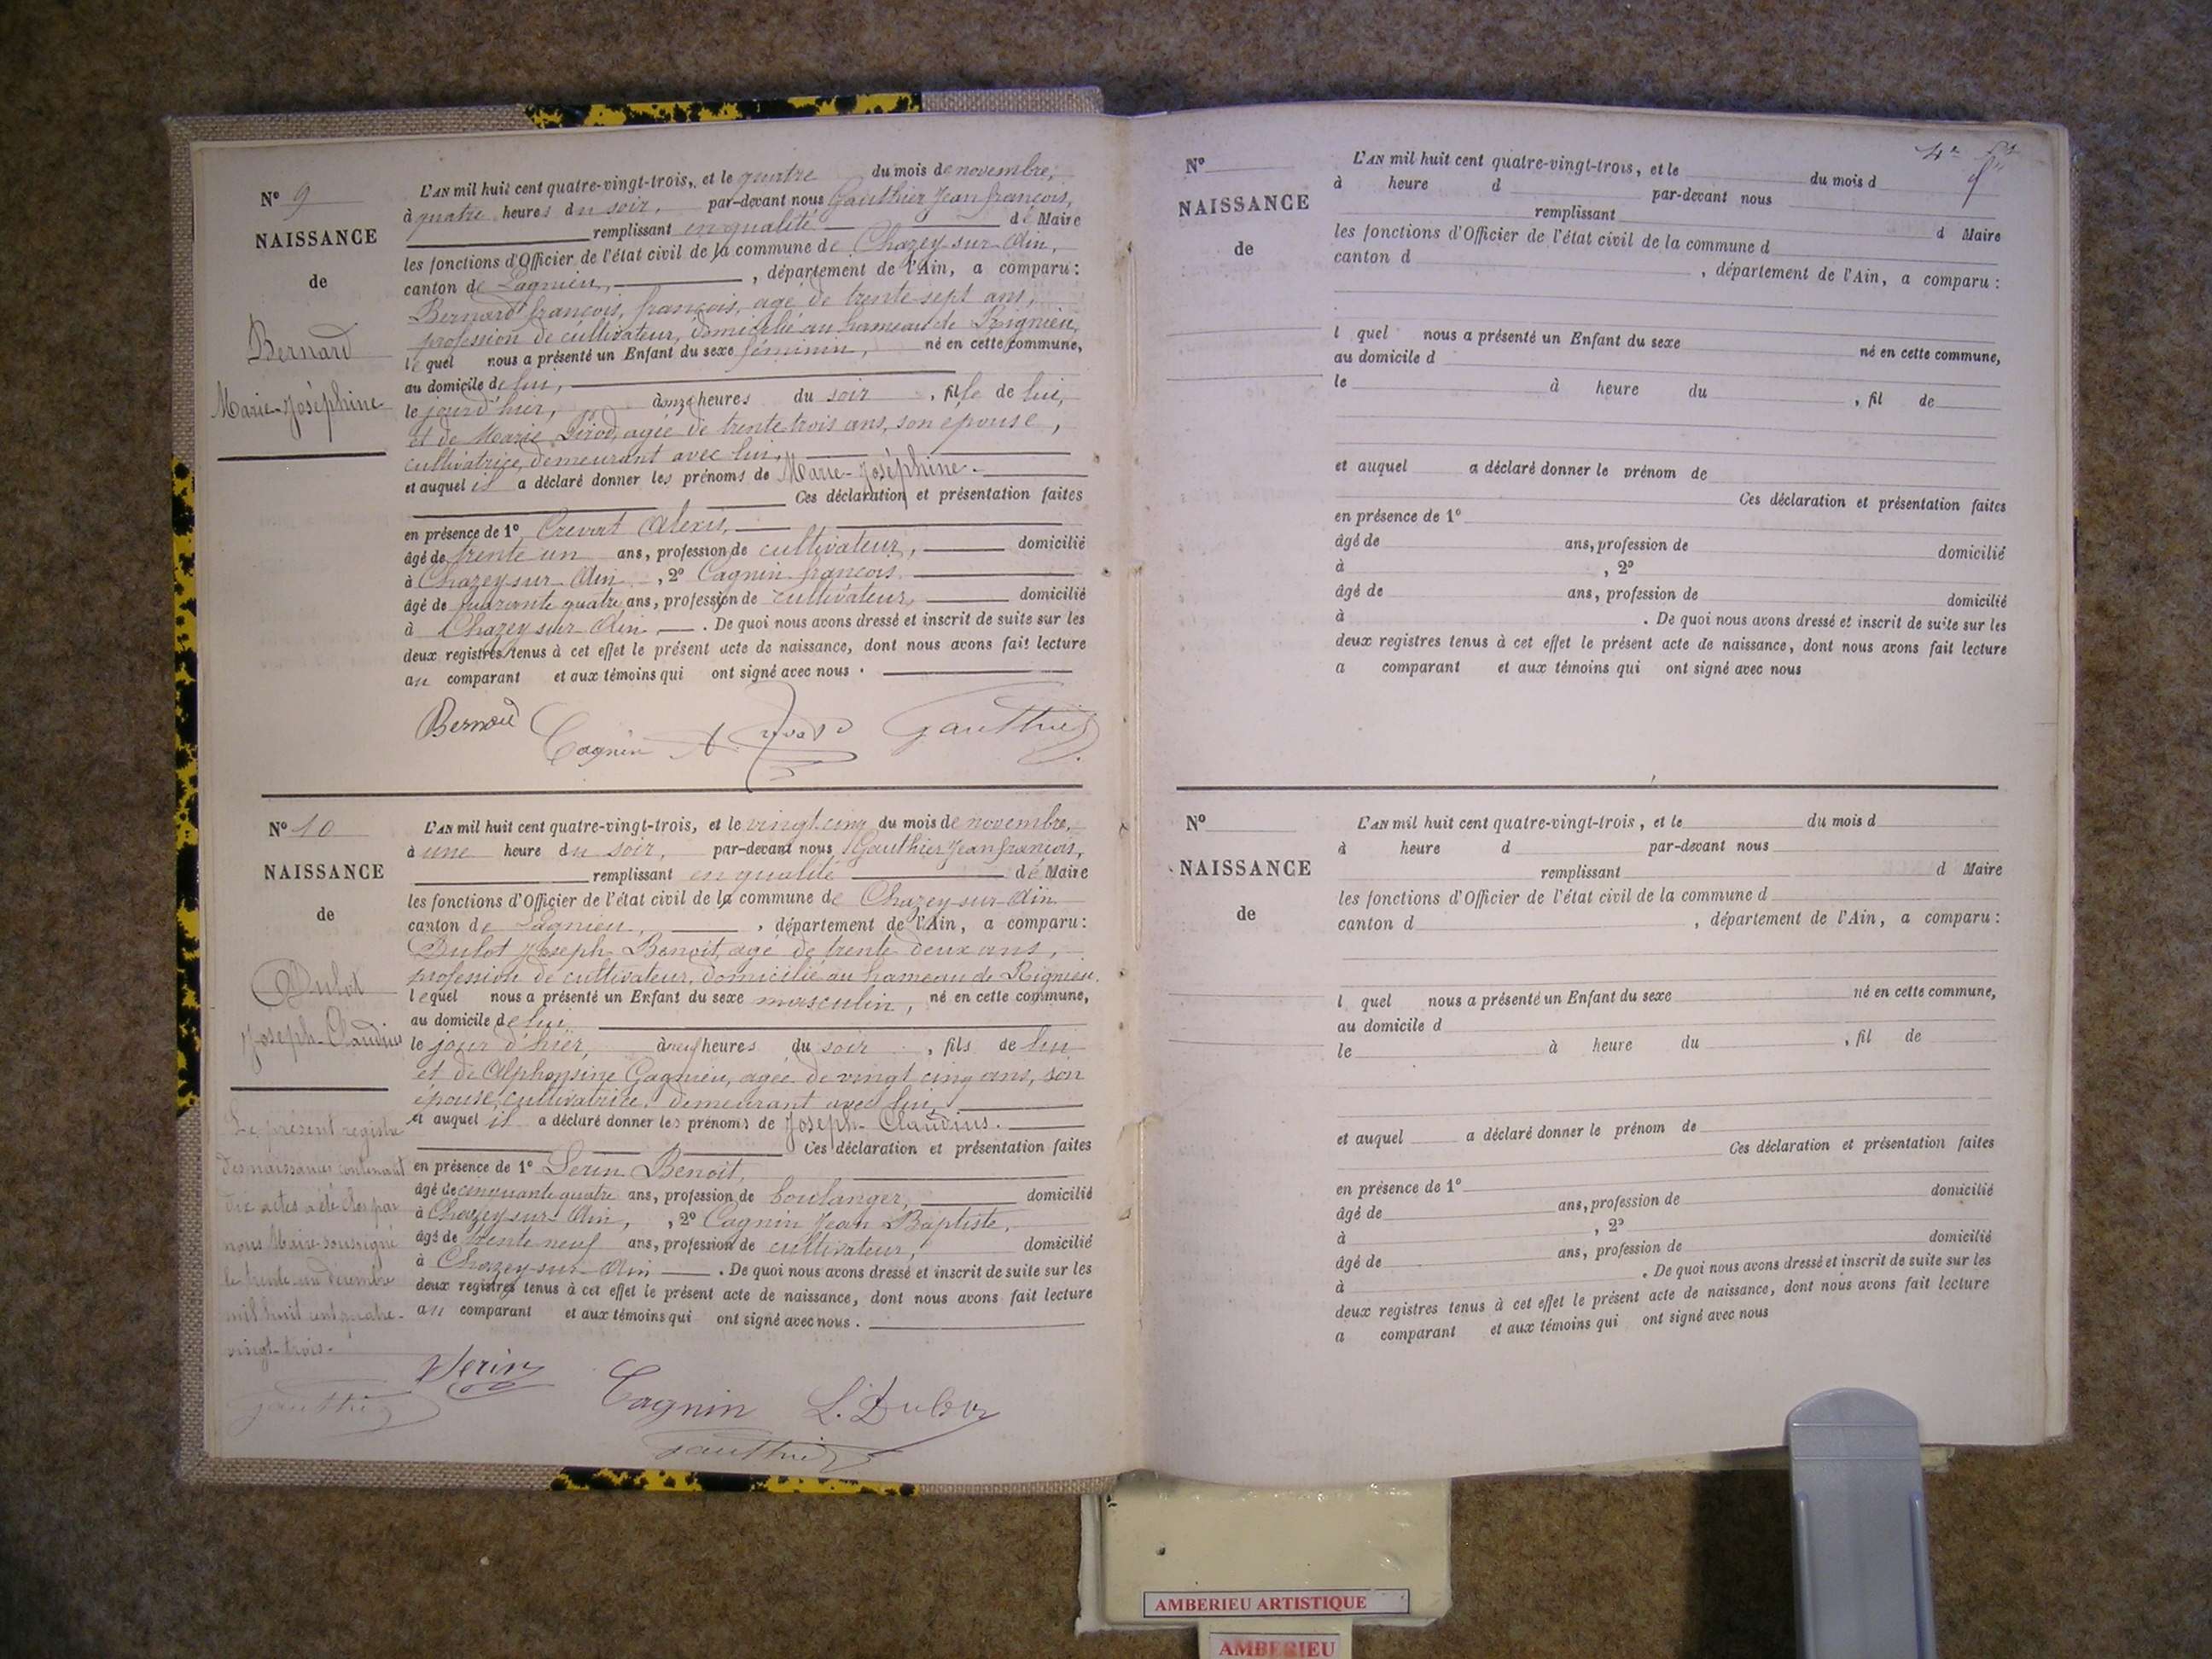 N° 9
NAISSANCE
de
Bernard
Marie-Joséphine
L'AN mil huit cent quatre-vingt-trois, et le quatre du mois de novembre,
à quatre heures du soir, par-devant nous Gauthier Jean françois,
remplissant en qualité de Maire
les fonctions d'Officier de l'état civil de la commune de Chazey-sur-Ain,
canton de Lagnieu, département de l'Ain, a comparu :
Bernard françois, françois, agé de trente sept ans,
profession de cultivateur, domicilié au hameau de Rignieu,
lequel nous a présenté un Enfant du sexe féminin, né en cette commune,
au domicile de lui,
le jour d'hier, à onze heures du soir, fille de lui,
et de Marie Pirod, agée de trente trois ans, son épouse,
cultivatrice, demeurant avec lui,
et auquel il a déclaré donner les prénoms de Marie-Joséphine.
Ces déclaration et présentation faites
en présence de 1° Crevat Alexis,
âgé de trente un ans, profession de cultivateur, domicilié
à Chazey-sur-Ain, 2° Cagnin françois
âgé de quarante quatre ans, profession de cultivateur, domicilié
à Chazey-sur-Ain. De quoi nous avons dressé et inscrit de suite sur les
deux registres tenus à cet effet le présent acte de naissance, dont nous avons fait lecture
au comparant et aux témoins qui ont signé avec nous.
Bernard Cagnin Gauthier
N° 10
NAISSANCE
de
Dulot
Joseph-Claudius
L'AN mil huit cent quatre-vingt-trois, et le vingt cinq du mois de novembre,
à une heure du soir, par-devant nous Gauthier Jean françois,
remplissant en qualité de Maire
les fonctions d'Officier de l'état civil de la commune de Chazey-sur-Ain
canton de Lagnieu, département de l'Ain, a comparu :
Dulot Joseph Benoit, agé de trente deux ans,
profession de cultivateur, domicilié au hameau de Rignieu.
lequel nous a présenté un Enfant du sexe masculin, né en cette commune,
au domicile de lui
le jour d'hier, à neuf heures du soir, fils de lui
et de Alphonsine Gagnieu, agée de vingt cinq ans, son
épouse, cultivatrice, demeurant avec lui,
et auquel il a déclaré donner les prénoms de Joseph-Claudius.
Ces déclaration et présentation faites
en présence de 1° Serin Benoit,
âgé de cinquante quatre ans, profession de boulanger, domicilié
à Chazey-sur-Ain, 2° Cagnin Jean Baptiste,
âgé de trente neuf ans, profession de cultivateur, domicilié
à Chazey-sur-Ain. De quoi nous avons dressé et inscrit de suite sur les
deux registres tenus à cet effet le présent acte de naissance, dont nous avons fait lecture
au comparant et aux témoins qui ont signé avec nous.
Le présent registre
des naissances contenant
dix actes a été clos par
nous Maire soussigné
le trente un décembre
mil huit cent quatre-
vingt-trois.
Gauthier
Serin Cagnin
Gauthier
N°
NAISSANCE
de
L'AN mil huit cent quatre-vingt-trois, et le du mois d
à heure d par-devant nous
remplissant d Maire
les fonctions d'Officier de l'état civil de la commune d
canton d , département de l'Ain, a comparu :
l quel nous a présenté un Enfant du sexe né en cette commune,
au domicile d
le à heure du , fil de
et auquel a déclaré donner le prénom de
Ces déclaration et présentation faites
en présence de 1°
âgé de ans, profession de domicilié
à , 2°
âgé de ans, profession de domicilié
à . De quoi nous avons dressé et inscrit de suite sur les
deux registres tenus à cet effet le présent acte de naissance, dont nous avons fait lecture
a comparant et aux témoins qui ont signé avec nous
N°
NAISSANCE
de
L'AN mil huit cent quatre-vingt-trois, et le du mois d
à heure d par-devant nous
remplissant d Maire
les fonctions d'Officier de l'état civil de la commune d
canton d , département de l'Ain, a comparu :
l quel nous a présenté un Enfant du sexe né en cette commune,
au domicile d
le à heure du , fil de
et auquel a déclaré donner le prénom de
Ces déclaration et présentation faites
en présence de 1°
âgé de ans, profession de domicilié
à , 2°
âgé de ans, profession de domicilié
à . De quoi nous avons dressé et inscrit de suite sur les
deux registres tenus à cet effet le présent acte de naissance, dont nous avons fait lecture
a comparant et aux témoins qui ont signé avec nous
AMBERIEU ARTISTIQUE
AMBERIEU